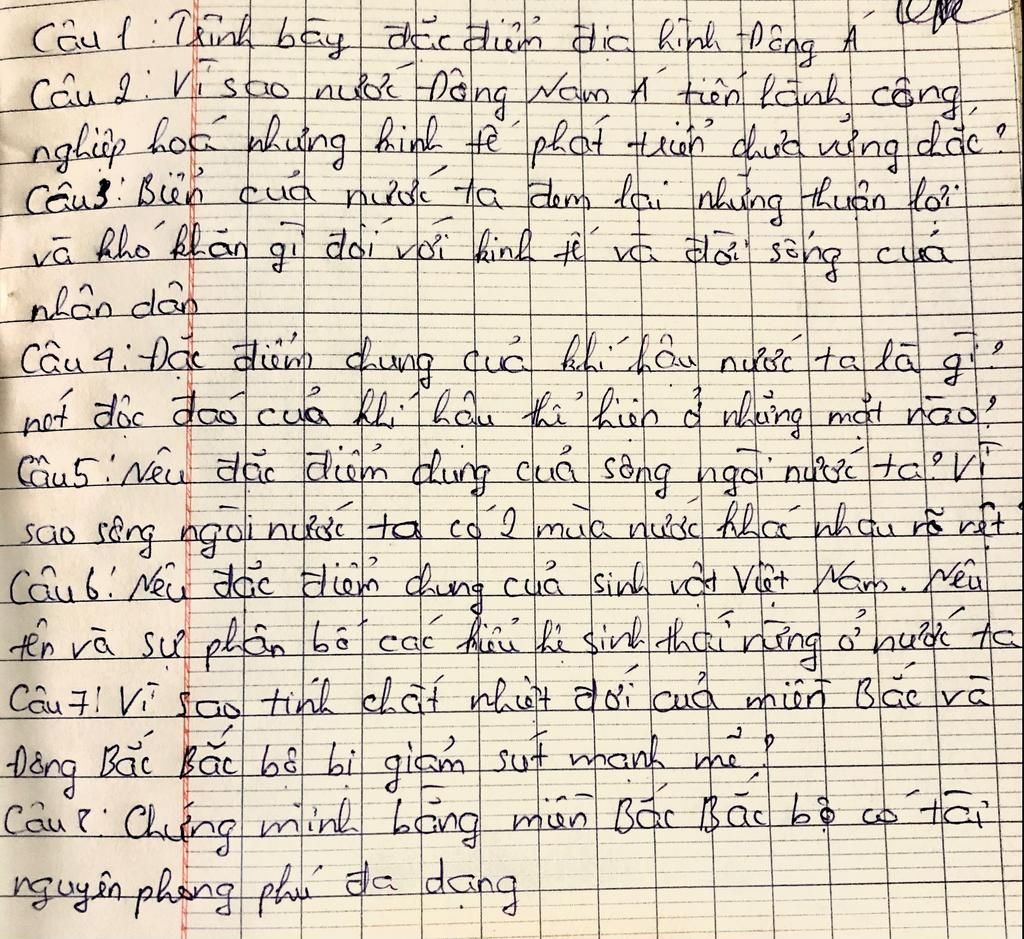 Câu 1: Trình bày đặc điểm địa hình Đông Á
Câu 2: Vì sao nước Đông Nam Á tiến hành công
nghiệp hoá nhưng kinh tế phát triển chưa vững chắc?
Câu 3: Biển của nước ta đem lại những thuận lợi
và khó khăn gì đối với kinh tế và đời sống của
nhân dân
Câu 4: Đặc điểm chung của khí hậu nước ta là gì?
nét độc đáo của khí hậu thể hiện ở những mặt nào?
Câu 5: Nêu đặc điểm chung của sông ngòi nước ta? Vì
sao sông ngòi nước ta có 2 mùa nước khác nhau rõ rệt
Câu 6: Nêu đặc điểm chung của sinh vật Việt Nam. Nêu
tên và sự phân bố các kiểu hệ sinh thái rừng ở nước ta
Câu 7: Vì sao tính chất nhiệt đới của miền Bắc và
Đông Bắc Bắc bộ bị giảm sút mạnh mẽ?
Câu 8: Chứng minh bằng miền Bắc Bắc bộ có tài
nguyên phong phú đa dạng